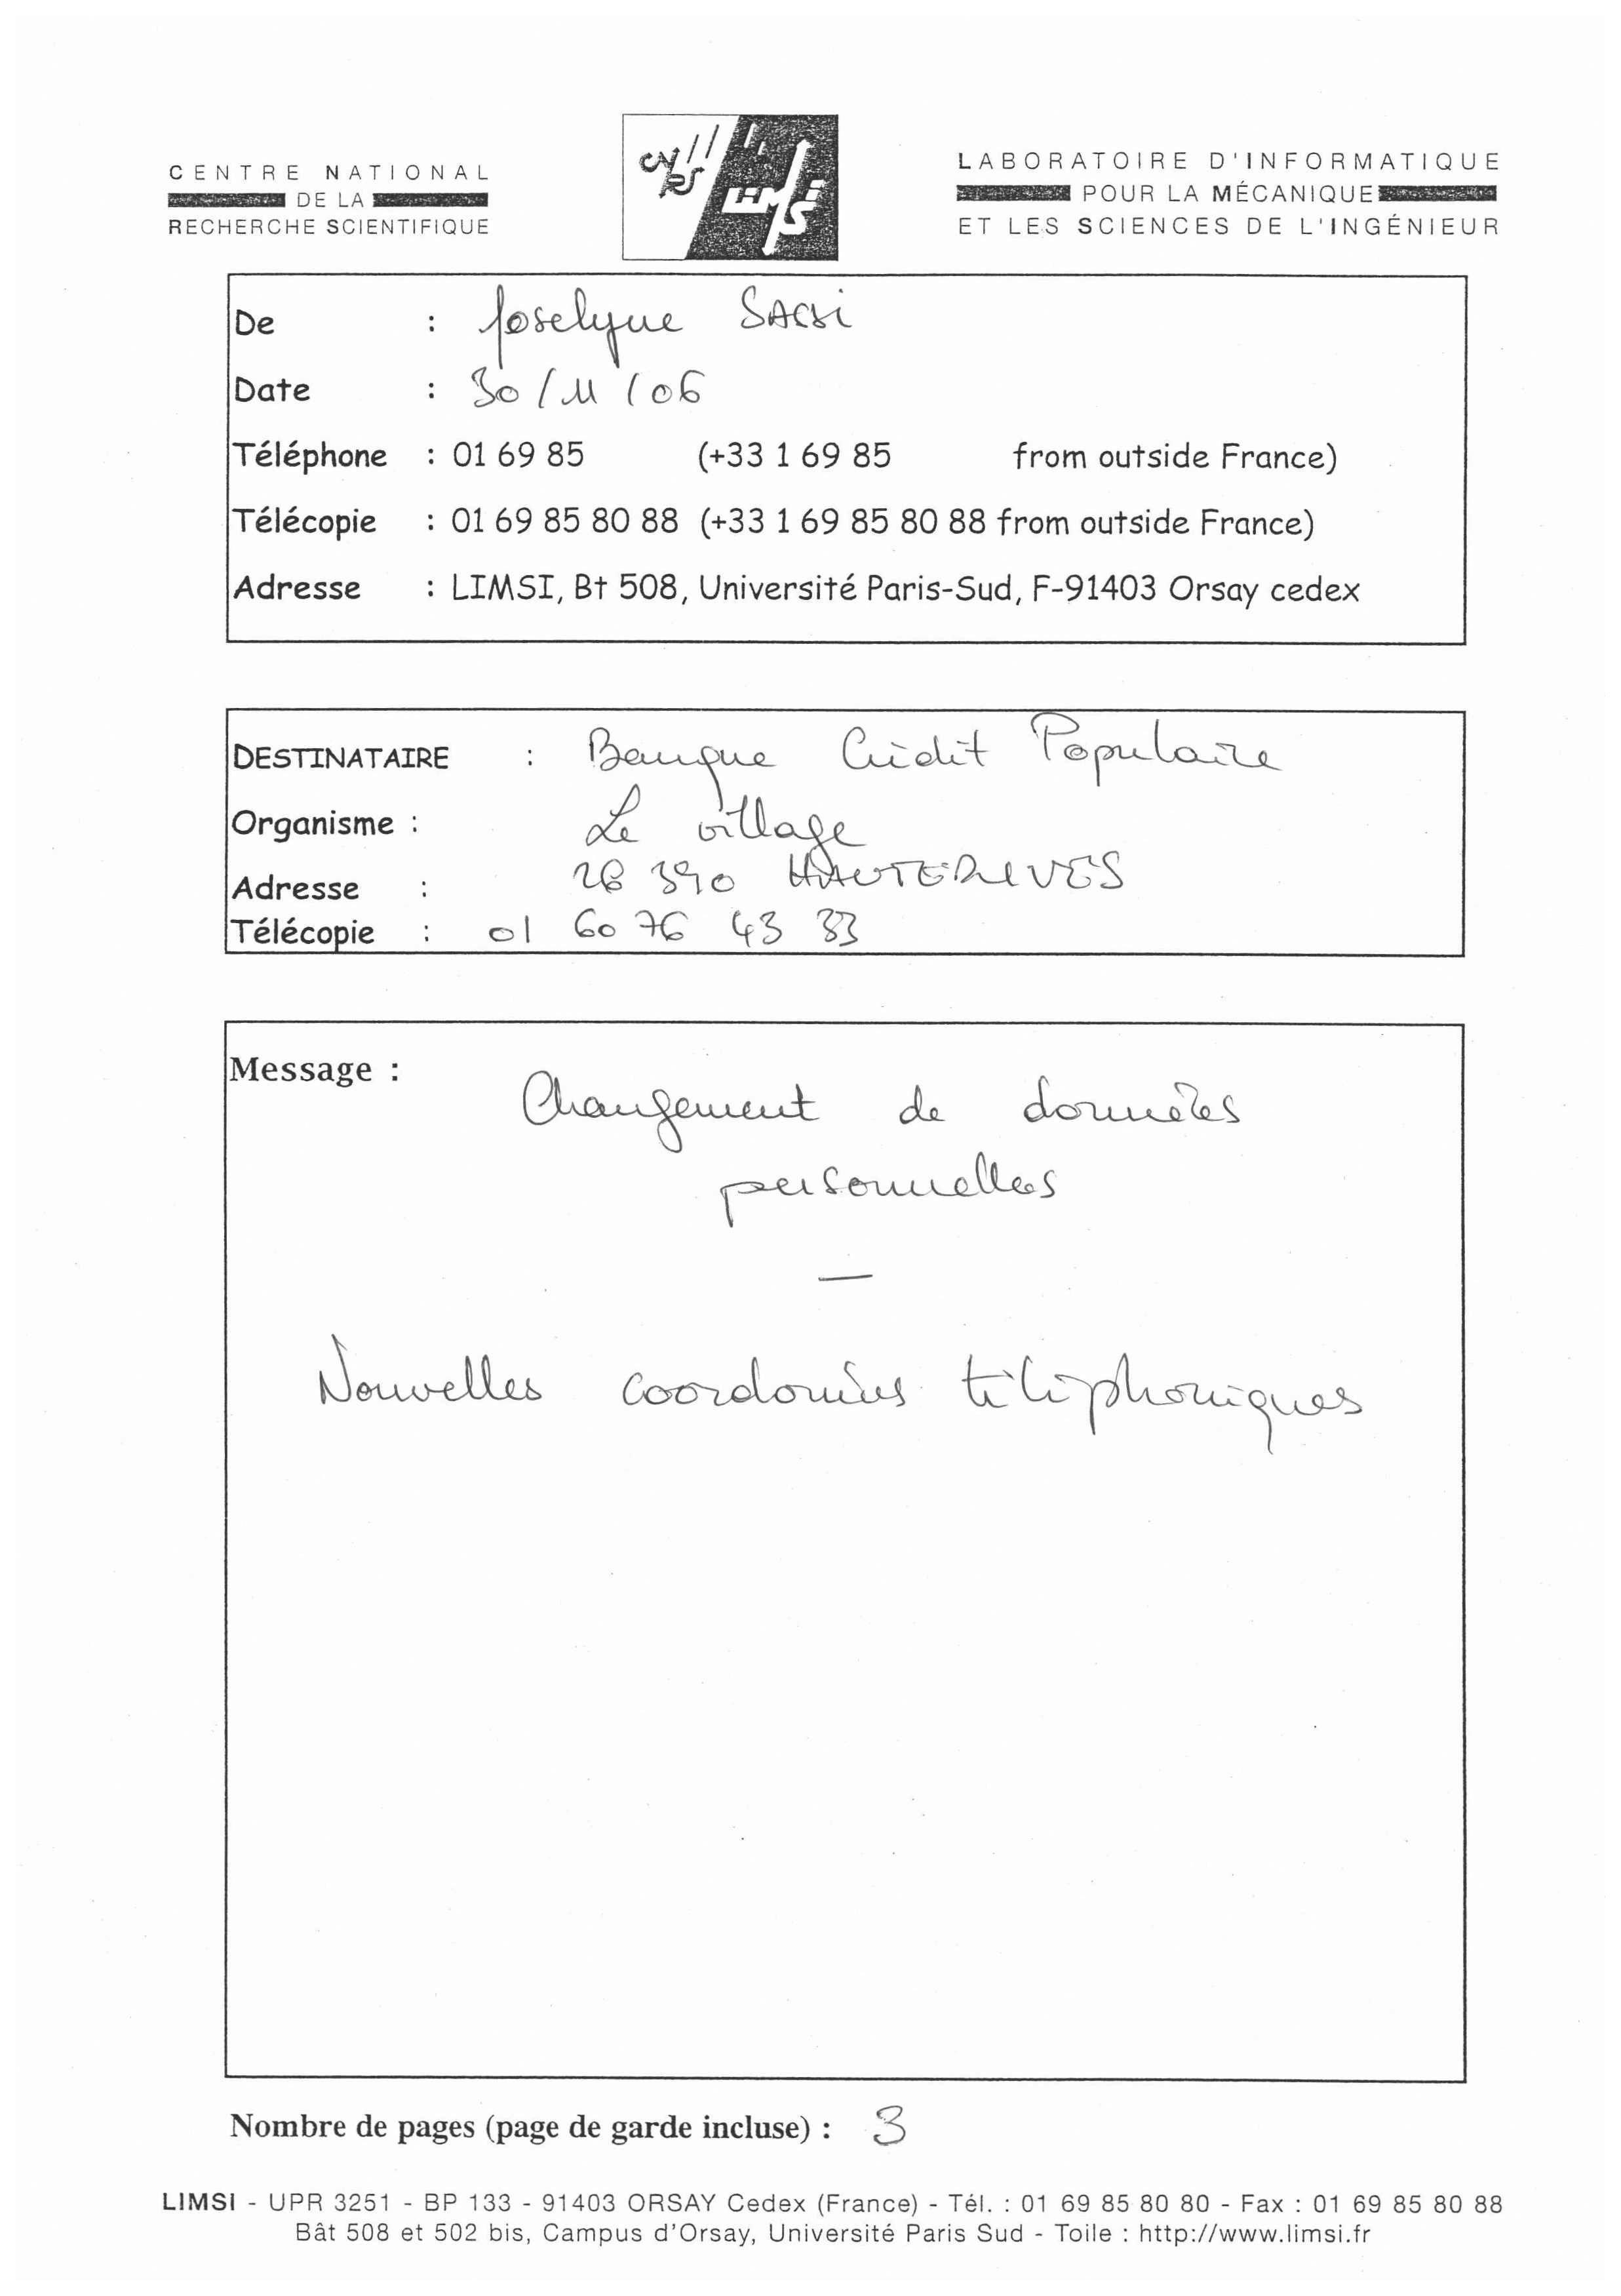 CENTRE NATIONAL
DE LA
RECHERCHE SCIENTIFIQUE
CNRS
LIMSI
LABORATOIRE D'INFORMATIQUE
POUR LA MÉCANIQUE
ET LES SCIENCES DE L'INGÉNIEUR
De : Joselyne
Date : 30/11/06
Téléphone : 01 69 85 (+33 1 69 85 from outside France)
Télécopie : 01 69 85 80 88 (+33 1 69 85 80 88 from outside France)
Adresse : LIMSI, Bt 508, Université Paris-Sud, F-91403 Orsay cedex
DESTINATAIRE : Banque Crédit Populaire
Organisme : Le village
Adresse : 26 390 HAUTERIVES
Télécopie : 01 60 76 43 33
Message :
Changement de données
personnelles
—
Nouvelles coordonées téléphoniques
Nombre de pages (page de garde incluse) : 3
LIMSI - UPR 3251 - BP 133 - 91403 ORSAY Cedex (France) - Tél. : 01 69 85 80 80 - Fax : 01 69 85 80 88
Bât 508 et 502 bis, Campus d'Orsay, Université Paris Sud - Toile : http://www.limsi.fr